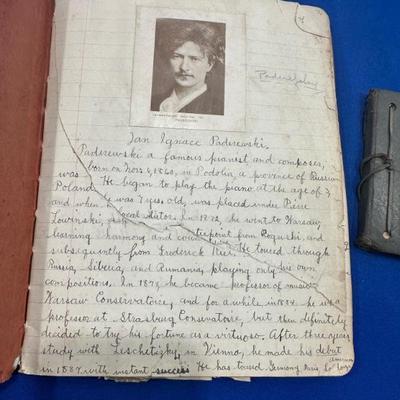 Paderewsky
Jan Ignace Paderewski.
Paderewski a famous pianest and composer,
was born on Nov 6, 1860, in Podolia, a provence of Russian
Poland. He began to play the piano at the age of 3
and when he was 7 years old, was placed under Pierre
Sowinski, local tutor. In 1872, he went to Warsaw,
learning harmony and counterpoint from Roguski, and
subsequently from Frederick Kiel. He toured through
Russia, Siberia, and Rumania, playing only his own
compositions. In 1879 he became professor of music
Warsaw Conservatoire, and for a while in 1884 he was
professor, at Strasburg Conservatoire, but then definitely
decided to try his fortune as a virtuoso. After three years
study with Leschetizky, in Vienna, he made his debut
in 1887. with instant success He has toured Germany, Paris, London
america